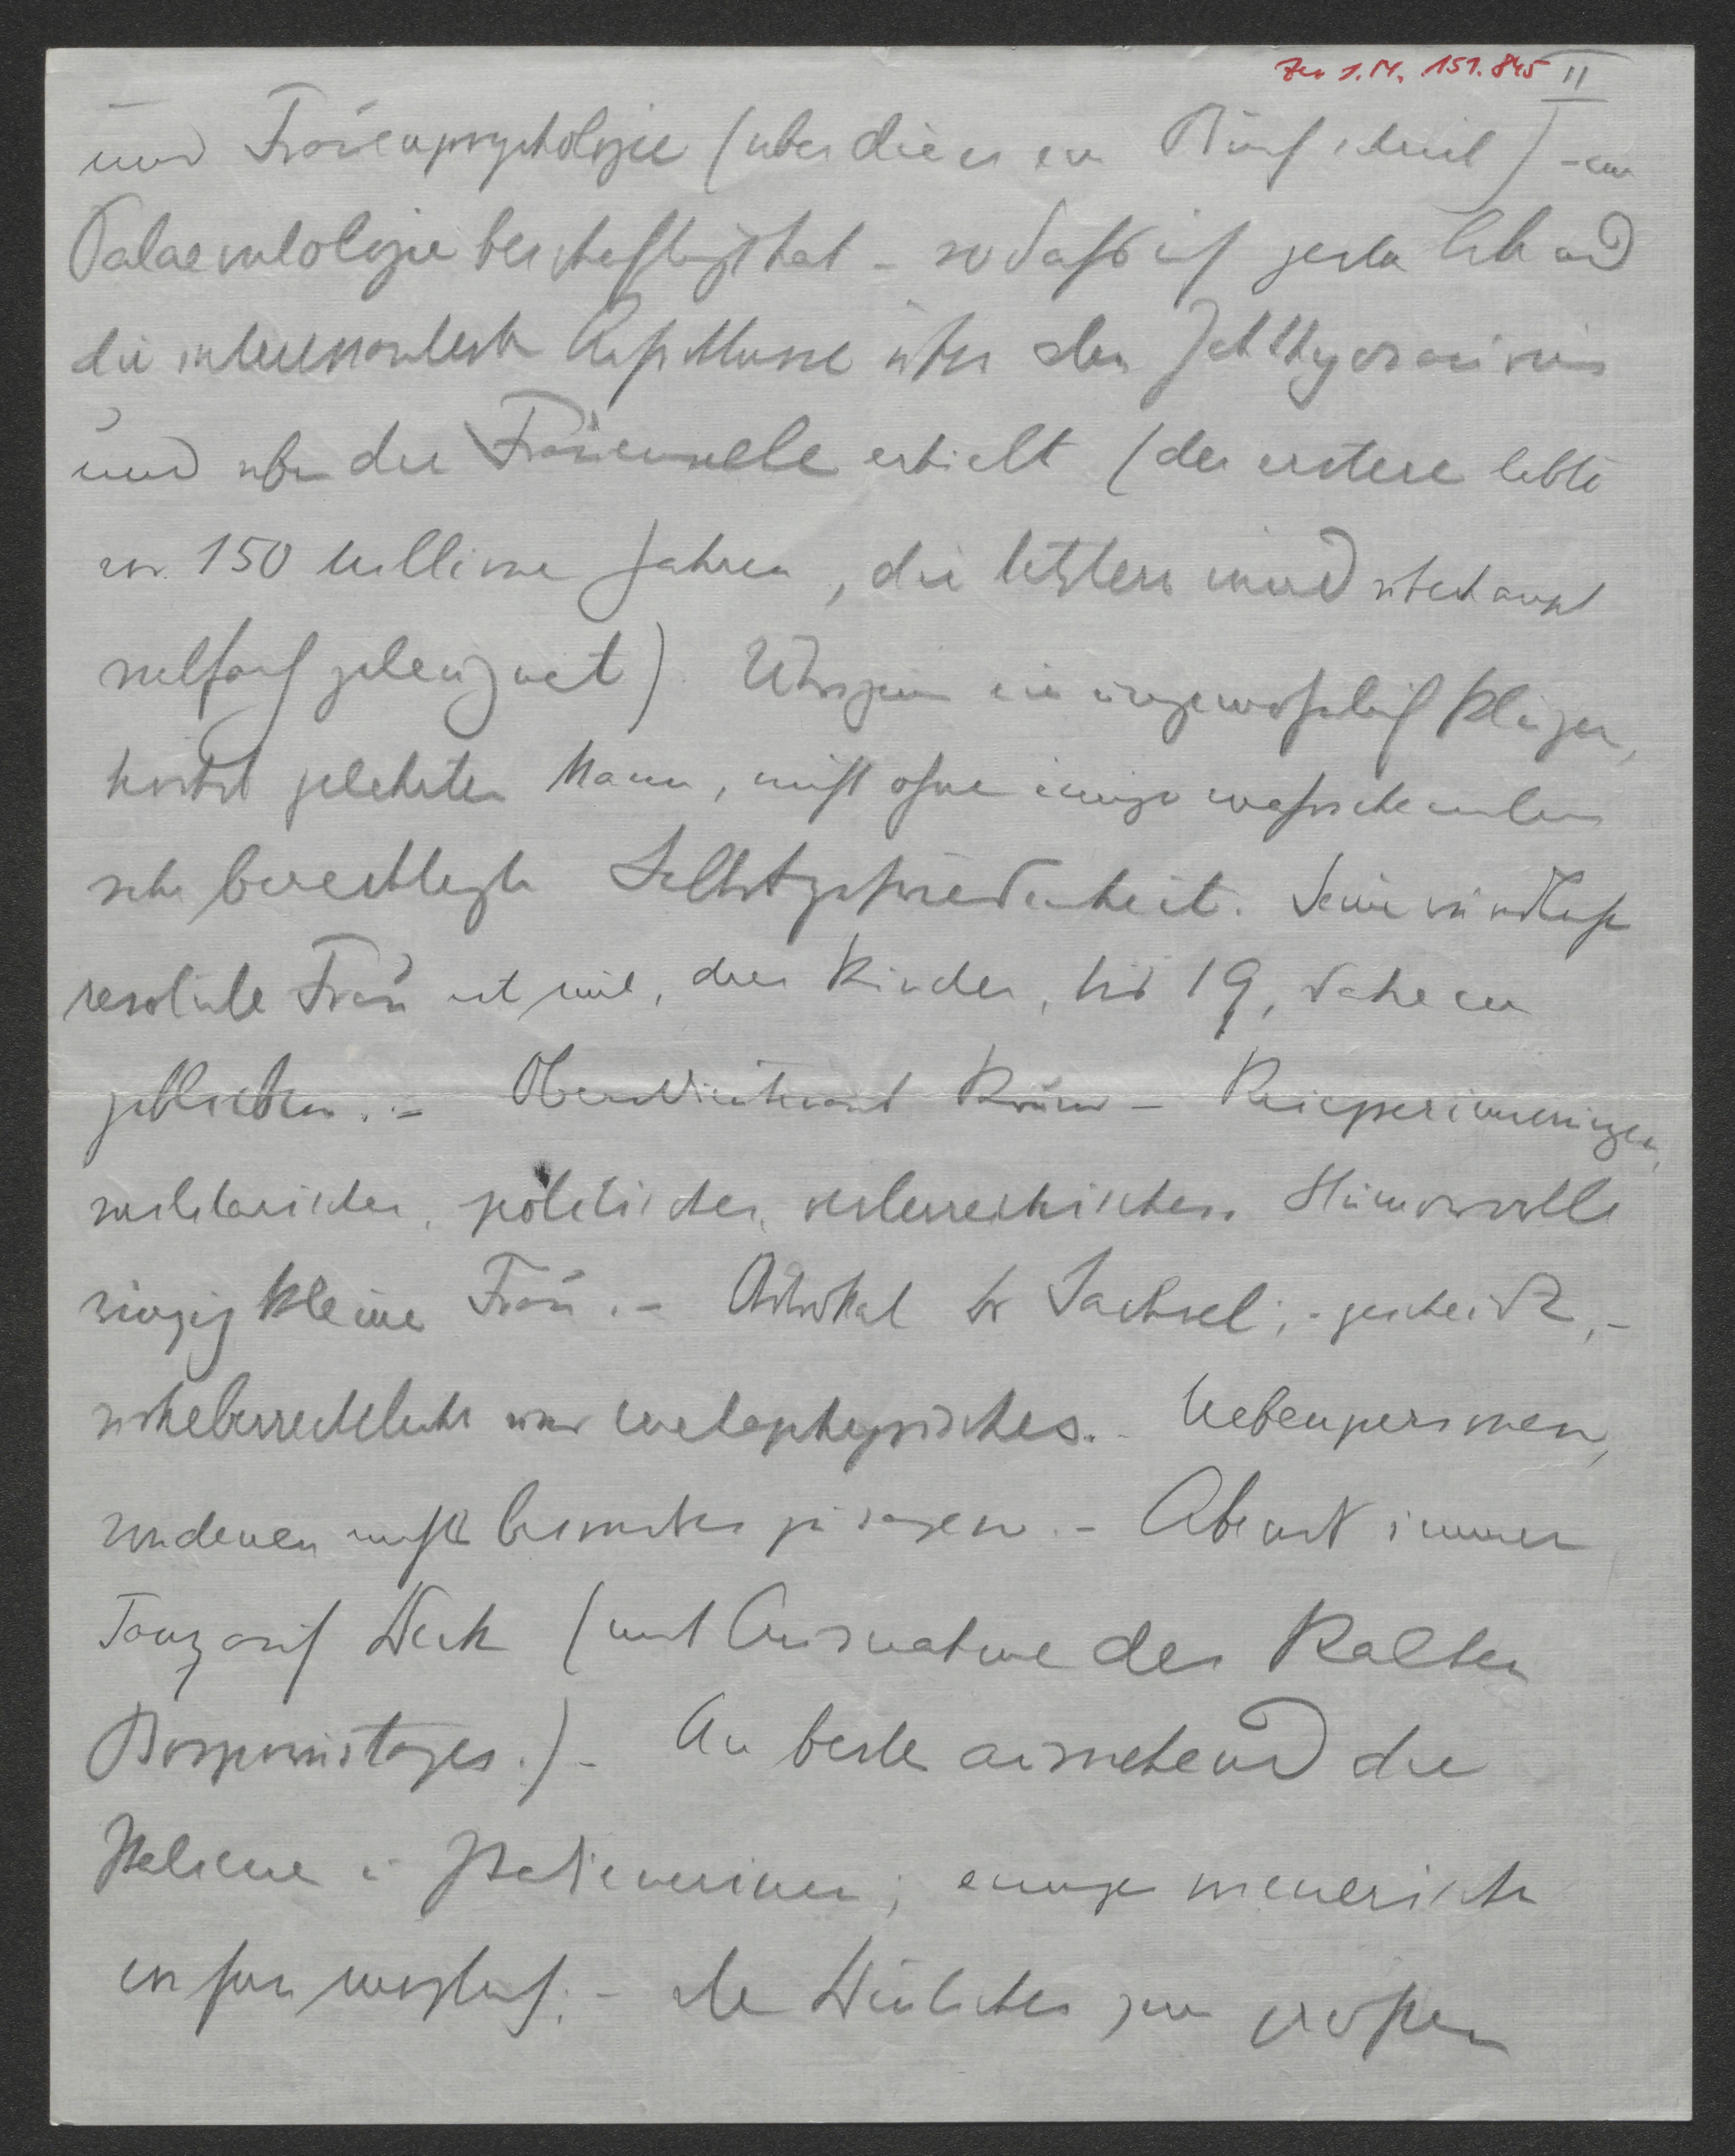 Zu I.N. 151.845 II
und Frauenpsychologie (über die er ein Buch schreibt) – und
Palaeontologie beschäftigt hat – so dass ich gestern Abend
die interessantesten Aufschlüsse über den Ichthyosaurus
und über die Frauenseele erhielt (der erstere lebte
vor 150 Millionen Jahren, die letztere wird überhaupt
vielfach geleugnet). Übrigens ein ungewöhnlich kluger,
höchst gelehrter Mann, nicht ohne einige wahrscheinlich
sehr berechtigte Selbstzufriedenheit. Seine
resolute Frau ist mit, drei Kinder, bis 19, daheim
geblieben. – Oberstlieutenant – Kriegserinnerungen,
militärischer, politischer, oesterreichischer. Humorvolle
winzig kleine Frau. – Advokat Dr Sachsel; – gescheidt, –
urheberrechtliches und metaphysisches. – Nebenpersonen,
von denen nicht besonders zu sagen. – Abends immer
Tanz auf Deck (mit Ausnahme des kalten
Bosporustages.) – Am besten aussehend die
Italiener u Italienerinnen; einige
 – die Deutschen zum grossen